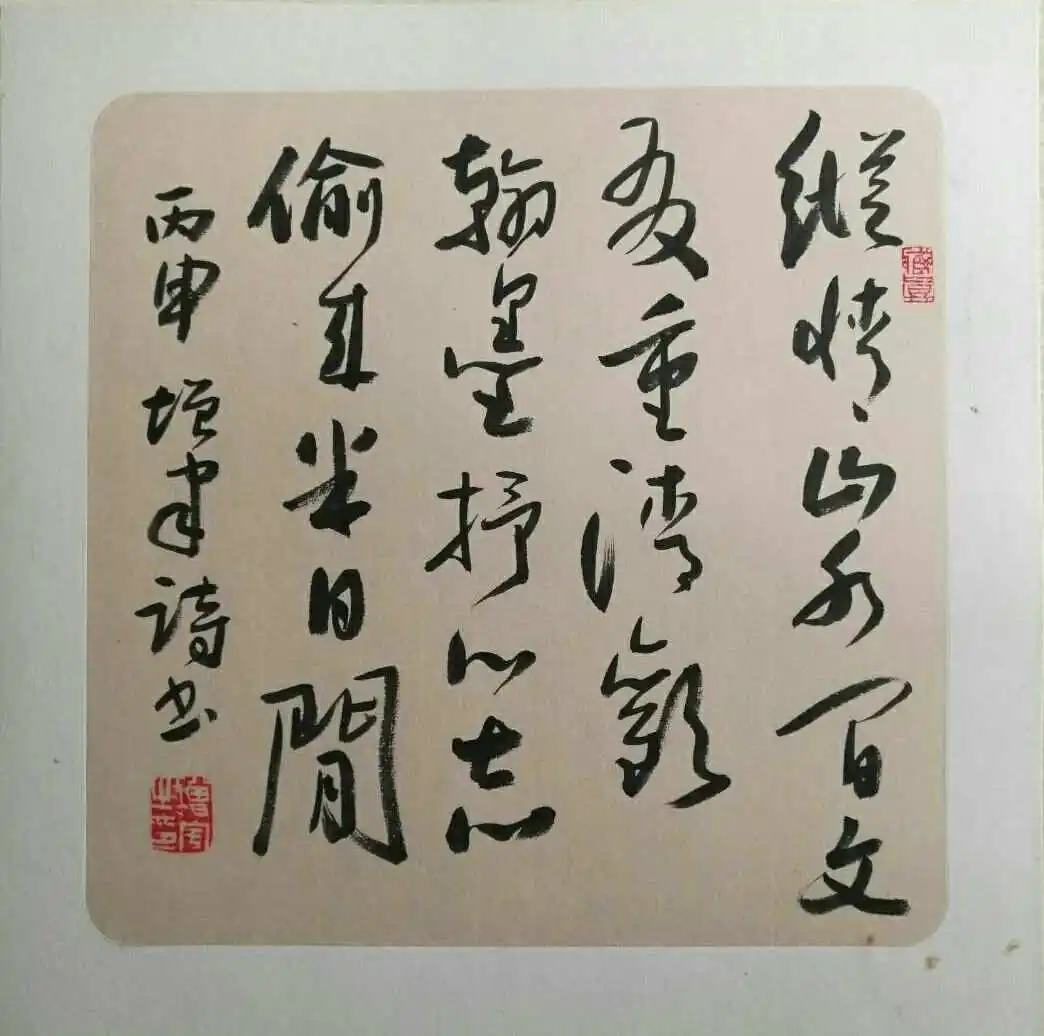 縱情山水間文
友重清歡
翰墨抒心志
偷來半日閒
丙申 增军詩书